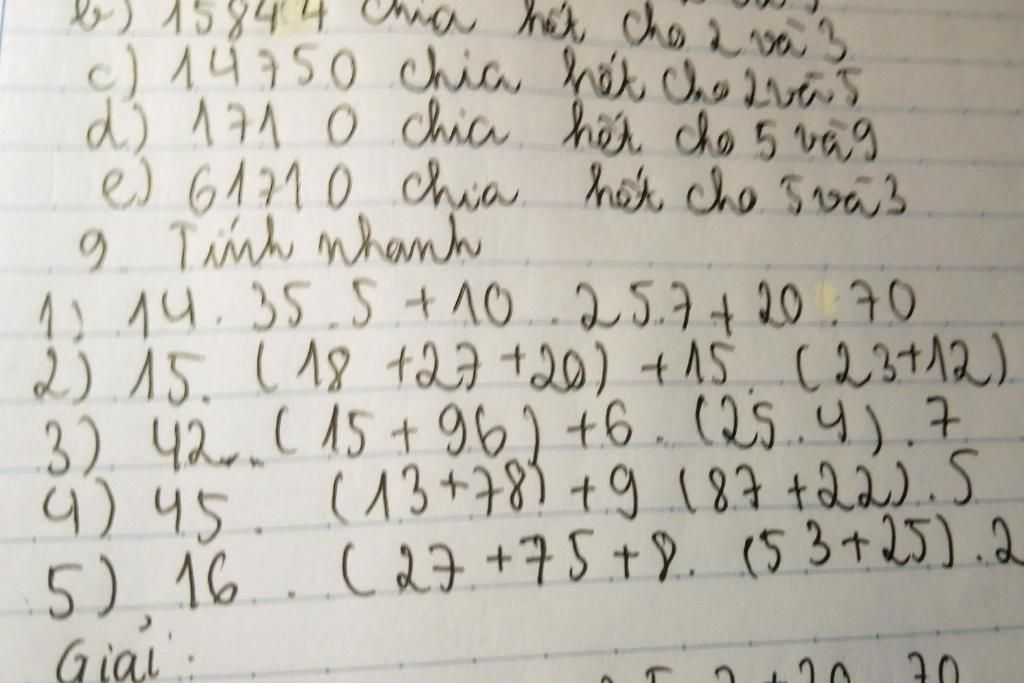 b) 15844 chia hết cho 2 và 3
c) 14750 chia hết cho 2 và 5
d) 171 0 chia hết cho 5 và 9
e) 61710 chia hết cho 5 và 3
9 Tính nhanh
1) 14. 35.5 + 10 . 25.7 + 20 . 70
2) 15. (18 +27 +20) + 15. (23+12)
3) 42.. (15 + 96) + 6 . (25.4) . 7
4) 45. (13+78) + 9 (87 +22) . 5
5) 16 . (27 +75 + 8. (53+25) . 2
Giải:
5.7 + 20 70